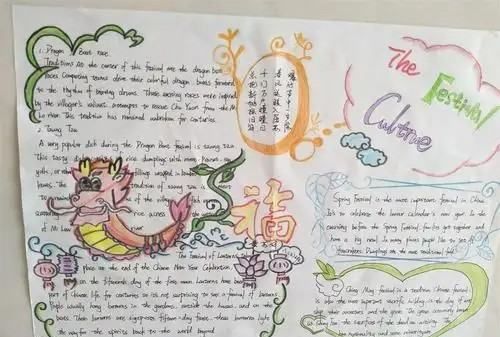 1. Dragon Boat race
Traditions At the center of this festival are the dragon boat
races. Competing teams drive their colorful dragon boats forward
to the rhythm of beating drums. These exciting races were inspired
by the villager's valiant attempts to rescue Chu Yuan from the Mi
Lo river. This tradition has remained unbroken for centuries.
2. Tzung Tzu
A very popular dish during the Dragon Boat festival is tzung tzu.
This tasty dish rice dumplings with meat, peanut, egg
fillings wrapped in bamboo
leaves. The tradition of tzung tzu is meant
to of the village
rice across the
Mi Lo river
爆竹声中一岁除
春风送暖入屠苏
千门万户曈曈日
总把新桃换旧符
The Festival Culture
福
The Festival of Lanterns takes
place at the end of the Chinese New Year Celebration
on the fifteenth day of the first moon. Lanterns have been
part of Chinese life for centuries so it's not surprising to see a festival of lanterns
People usually hang lanterns in the gardens, outside the houses, and on the
boats. These lanterns are signs for these lanterns light
the way for the spirits back to the world beyond
Spring Festival is the most important festival in China
It's to celebrate the lunar calendar's new year. In the
evening before the Spring Festival families get together and
have a big meal. In many places people like to set off
firecrackers. Dumplings are the most traditional food.
Ching Ming festival is a tradition Chinese festival,
is also the most important sacrifice holiday, is the day of
their ancestors and the grave. The
the customs of the dead on
and some minorities